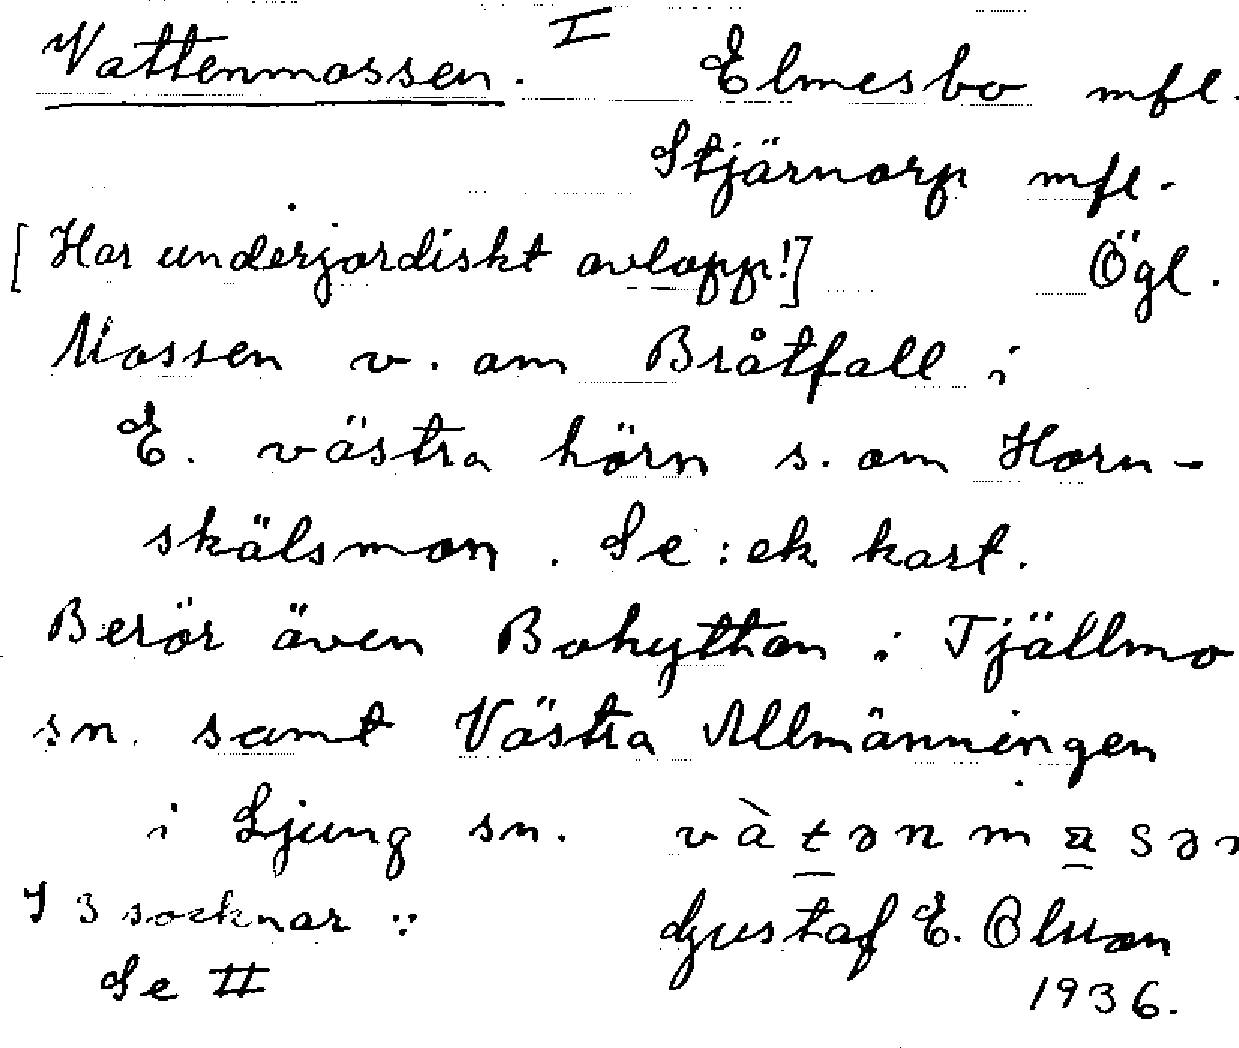 Vattenmossen. I Elmesbo mfl.
Stjärnorp mfl.
[Har underjordiskt avlopp!] Ögl.
Mossen v. om Bråtfall i
E. västra hörn s. om Horn-
skälsmon. Se: ek kart.
Berör även Bohyttan i Tjällmo
sn. samt Västra Allmänningen
i Ljung sn. vàtənm sən
I 3 socknar :
Gustaf E. Olsson
Se II
1936.